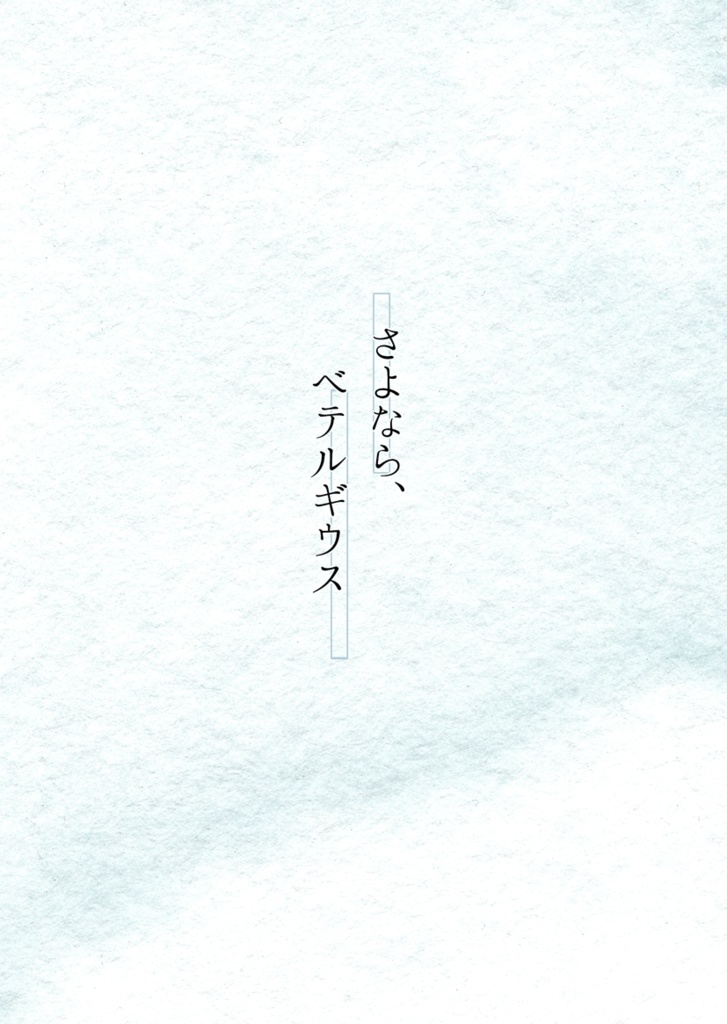 さよなら、
ベテルギウス